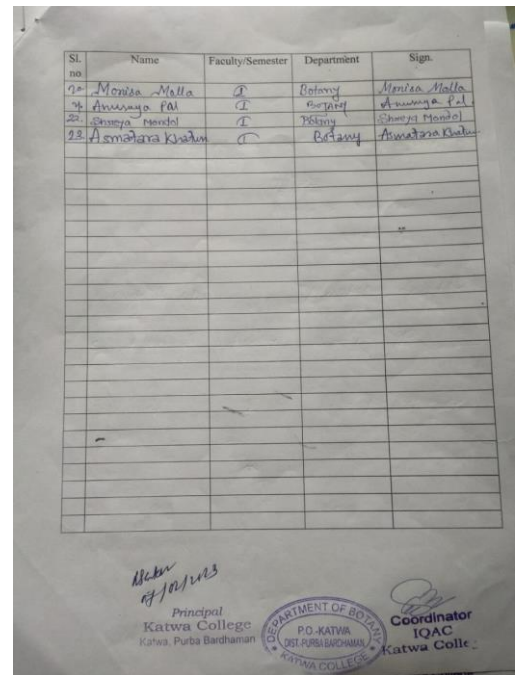 Sl. no Name Faculty/Semester Department Sign.
20 Monisa Malla I Botany Monisa Malla
21 Anuraga Pal I Botany Anuraga Pal
22. Shreya Mondol I Botany Shreya Mondol
23 Asmatara Khatun I Botany Asmatara Khatun
Principal
Katwa College
Katwa, Purba Bardhaman
DEPARTMENT OF BOTANY
P.O.-KATWA
DIST.-PURBA BARDHAMAN
KATWA COLLEGE
Coordinator
IQAC
Katwa Colle